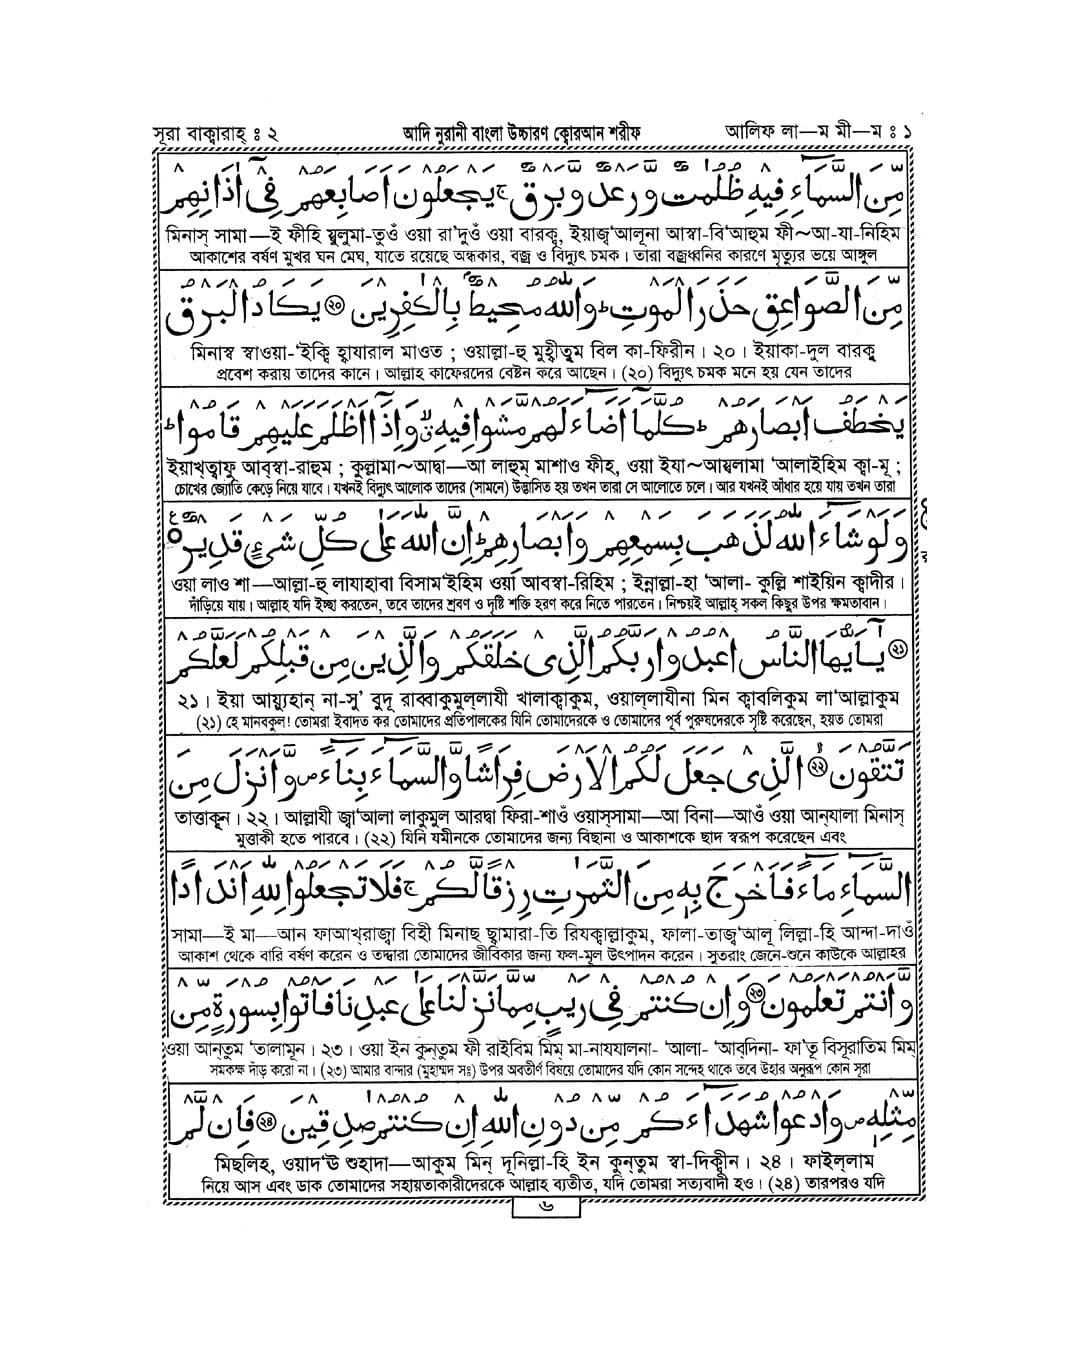 সূরা বাক্বারাহ্ ঃ ২ আদি নুরানী বাংলা উচ্চারণ কোরআন শরীফ আলিফ লা—ম মী—ম ঃ ১
مِّنَ السَّمَآءِ فِيْهِ ظُلُمٰتٌ وَّرَعْدٌ وَّبَرْقٌ ۚ يَجْعَلُوْنَ اَصَابِعَهُمْ فِيْٓ اٰذَانِهِمْ
মিনাস্ সামা—ই ফীহি য়ুলুমা-তুওঁ ওয়া রা'দুওঁ ওয়া বারক্ব, ইয়াজ্'আলূনা আস্বা-বি'আহুম ফী~আ-যা-নিহিম
আকাশের বর্ষণ মুখর ঘন মেঘ, যাতে রয়েছে অন্ধকার, বজ্র ও বিদ্যুৎ চমক। তারা বজ্রধ্বনির কারণে মৃত্যুর ভয়ে আঙ্গুল
مِّنَ الصَّوَاعِقِ حَذَرَ الْمَوْتِ ؕ وَاللّٰهُ مُحِيْطٌۢ بِالْكٰفِرِيْنَ ۲۰ يَكَادُ الْبَرْقُ
মিনাস্ব স্বাওয়া-'ইক্বি হ্বাযারাল মাওত ; ওয়াল্লা-হু মুহ্বীতুম বিল কা-ফিরীন। ২০। ইয়াকা-দুল বারকু
প্রবেশ করায় তাদের কানে। আল্লাহ কাফেরদের বেষ্টন করে আছেন। (২০) বিদ্যুৎ চমক মনে হয় যেন তাদের
يَخْطَفُ اَبْصَارَهُمْ ؕ كُلَّمَآ اَضَآءَ لَهُمْ مَّشَوْا فِيْهِ ۙ وَاِذَآ اَظْلَمَ عَلَيْهِمْ قَامُوْا ؕ
ইয়াখ্ত্বাফু আব্স্বা-রাহুম ; কুল্লামা~আদ্বা—আ লাহুম্ মাশাও ফীহ, ওয়া ইযা~আয্বলামা 'আলাইহিম ক্বা-মূ ;
চোখের জ্যোতি কেড়ে নিয়ে যাবে। যখনই বিদ্যুৎ আলোক তাদের (সামনে) উদ্ভাসিত হয় তখন তারা সে আলোতে চলে। আর যখনই আঁধার হয়ে যায় তখন তারা
وَلَوْ شَآءَ اللّٰهُ لَذَهَبَ بِسَمْعِهِمْ وَاَبْصَارِهِمْ ؕ اِنَّ اللّٰهَ عَلٰى كُلِّ شَيْءٍ قَدِيْرٌ ۟
ওয়া লাও শা—আল্লা-হু লাযাহাবা বিসাম'ইহিম ওয়া আবস্বা-রিহিম ; ইন্নাল্লা-হা 'আলা- কুল্লি শাইয়িন ক্বাদীর।
দাঁড়িয়ে যায়। আল্লাহ যদি ইচ্ছা করতেন, তবে তাদের শ্রবণ ও দৃষ্টি শক্তি হরণ করে নিতে পারতেন। নিশ্চয়ই আল্লাহ্ সকল কিছুর উপর ক্ষমতাবান।
۲۱ يٰٓاَيُّهَا النَّاسُ اعْبُدُوْا رَبَّكُمُ الَّذِيْ خَلَقَكُمْ وَالَّذِيْنَ مِنْ قَبْلِكُمْ لَعَلَّكُمْ
২১। ইয়া আয়্যুহান্ না-সু' বুদূ রাব্বাকুমুল্লাযী খালাক্বাকুম, ওয়াল্লাযীনা মিন ক্বাবলিকুম লা'আল্লাকুম
(২১) হে মানবকুল! তোমরা ইবাদত কর তোমাদের প্রতিপালকের যিনি তোমাদেরকে ও তোমাদের পূর্ব পুরুষদেরকে সৃষ্টি করেছেন, হয়ত তোমরা
تَتَّقُوْنَ ۲۲ الَّذِيْ جَعَلَ لَكُمُ الْاَرْضَ فِرَاشًا وَّالسَّمَآءَ بِنَآءً ص وَّاَنْزَلَ مِنَ
তাত্তাকূন। ২২। আল্লাযী জ্বা'আলা লাকুমুল আরদ্বা ফিরা-শাওঁ ওয়াস্সামা—আ বিনা—আওঁ ওয়া আন্যালা মিনাস্
মুত্তাকী হতে পারবে। (২২) যিনি যমীনকে তোমাদের জন্য বিছানা ও আকাশকে ছাদ স্বরূপ করেছেন এবং
السَّمَآءِ مَآءً فَاَخْرَجَ بِهٖ مِنَ الثَّمَرٰتِ رِزْقًا لَّكُمْ ۚ فَلَا تَجْعَلُوْا لِلّٰهِ اَنْدَادًا
সামা—ই মা—আন ফাআখ্রাজ্বা বিহী মিনাছ ছ্বামারা-তি রিযক্বাল্লাকুম, ফালা-তাজ্ব'আলূ লিল্লা-হি আন্দা-দাওঁ
আকাশ থেকে বারি বর্ষণ করেন ও তদ্দ্বারা তোমাদের জীবিকার জন্য ফল-মূল উৎপাদন করেন। সুতরাং জেনে-শুনে কাউকে আল্লাহর
وَّاَنْتُمْ تَعْلَمُوْنَ ۲۳ وَاِنْ كُنْتُمْ فِيْ رَيْبٍ مِّمَّا نَزَّلْنَا عَلٰى عَبْدِنَا فَاْتُوْا بِسُوْرَةٍ مِّنْ
ওয়া আন্তুম 'তালামূন। ২৩। ওয়া ইন কুন্তুম ফী রাইবিম মিম্ মা-নাযযালনা- 'আলা- 'আব্দিনা- ফা'তূ বিসূরাতিম মিম্
সমকক্ষ দাঁড় করো না। (২৩) আমার বান্দার (মুহাম্মদ সঃ) উপর অবতীর্ণ বিষয়ে তোমাদের যদি কোন সন্দেহ থাকে তবে উহার অনুরূপ কোন সূরা
مِّثْلِهٖ ص وَادْعُوْا شُهَدَآءَكُمْ مِّنْ دُوْنِ اللّٰهِ اِنْ كُنْتُمْ صٰدِقِيْنَ ۲۴ فَاِنْ لَّمْ
মিছলিহ, ওয়াদ'ঊ শুহাদা—আকুম মিন্ দূনিল্লা-হি ইন কুন্তুম স্বা-দিক্বীন। ২৪। ফাইল্লাম
নিয়ে আস এবং ডাক তোমাদের সহায়তাকারীদেরকে আল্লাহ ব্যতীত, যদি তোমরা সত্যবাদী হও। (২৪) তারপরও যদি
৬